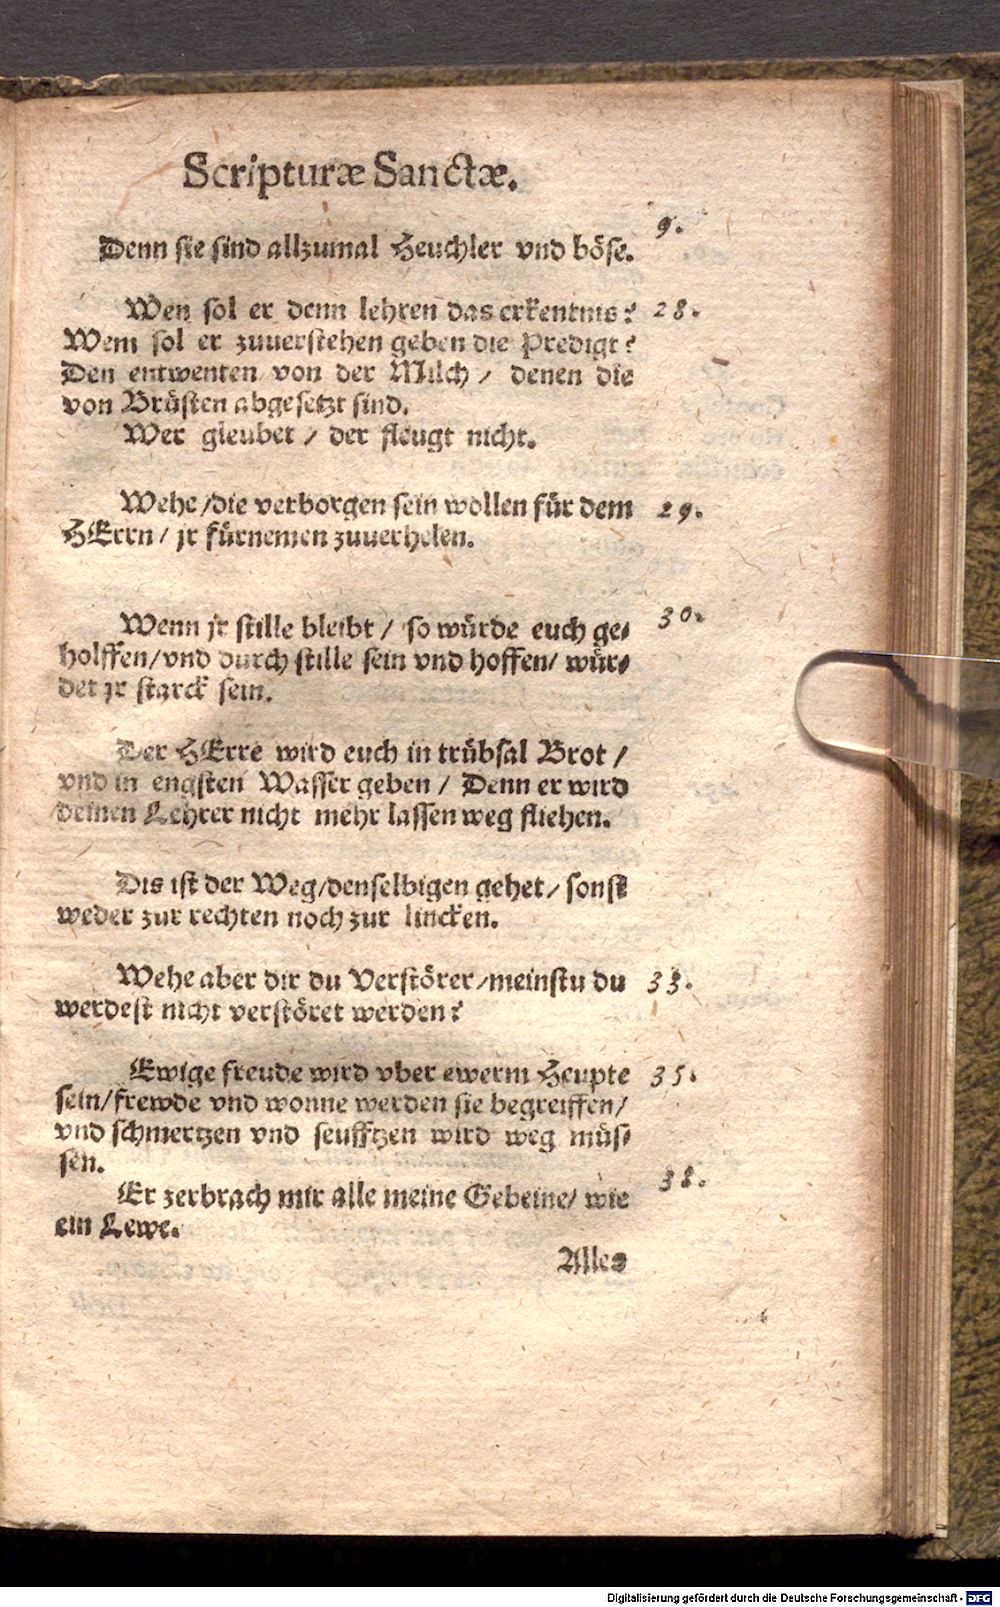 Scripturæ Sanctæ.
9.
Denn sie sind allzumal Heuchler vnd böse.
Wen sol er denn lehren das erkentnis? 28.
Wem sol er zuuerstehen geben die Predigt?
Den entwenten von der Milch / denen die
von Brüsten abgesetzt sind.
Wer gleubet / der fleugt nicht.
Wehe /die verborgen sein wollen für dem 29.
HErrn / jr fürnemen zuuerhelen.
Wenn jr stille bleibt / so würde euch ge- 30.
holffen/vnd durch stille sein vnd hoffen/ wür-
det jr starck sein.
Der HErre wird euch in trübsal Brot /
vnd in engsten Wasser geben / Denn er wird
deinen Lehrer nicht mehr lassen weg fliehen.
Dis ist der Weg/denselbigen gehet/ sonst
weder zur rechten noch zur lincken.
Wehe aber dir du Verstörer/meinstu du 33.
werdest nicht verstöret werden?
Ewige freude wird vber ewerm Heupte 35.
sein/frewde vnd wonne werden sie begreiffen/
vnd schmertzen vnd seufftzen wird weg müs-
sen.
Er zerbrach mir alle meine Gebeine/ wie 38.
ein Lewe.
Alles
Digitalisierung gefördert durch die Deutsche Forschungsgemeinschaft - DFG